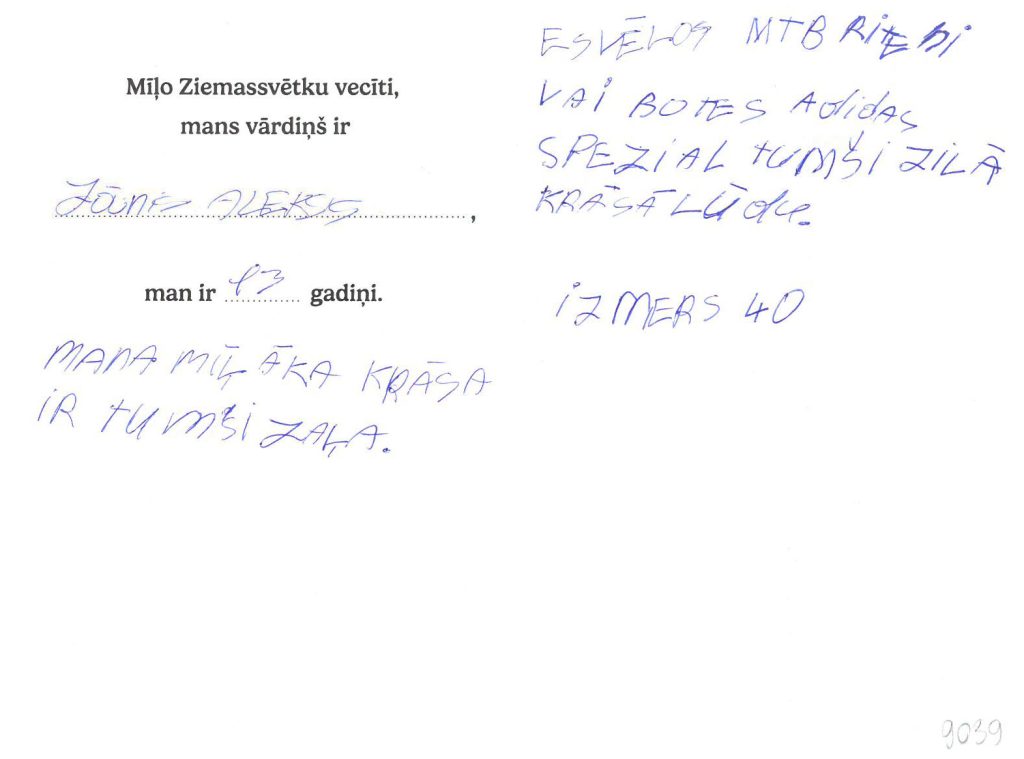 Mīļo Ziemassvētku vecīti,
mans vārdiņš ir
Jānis ALEKSIS,
man ir 13 gadiņi.
MANA MĪĻĀKA KRĀSA
IR TUMŠI ZAĻA.
ES VĒLOS MTB RITENI
VAI BOTES Adidas
SPEZIAL TUMŠI ZILĀ
KRĀSĀ LŪdzu.
IZMERS 40
9039